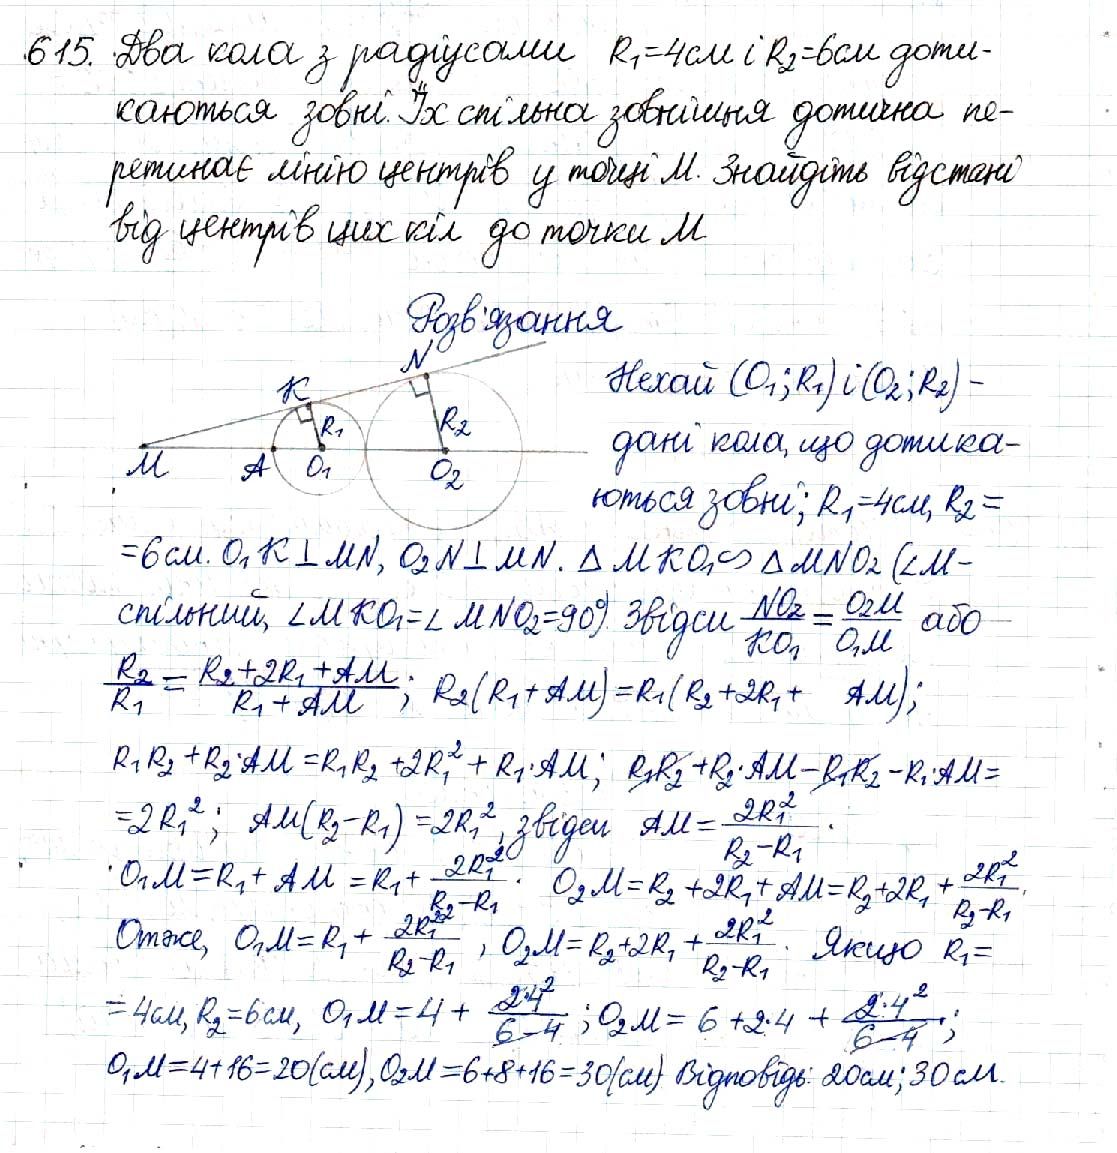 615. Два кола з радіусами R₁=4см і R₂=6см доти-
каються зовні. Їх спільна зовнішня дотична пе-
ретинає лінію центрів у точці М. Знайдіть відстані
від центрів цих кіл до точки М
Розв'язання
N
K
R₁
R₂
M
A
O₁
O₂
Нехай (O₁; R₁) і (O₂; R₂) -
дані кола, що дотика-
ються зовні; R₁=4см, R₂=
=6см. O₁K⊥MN, O₂N⊥MN. △MKO₁∽△MNO₂ (∠M-
спільний, ∠MKO₁=∠MNO₂=90°). Звідси NO₂/KO₁ = O₂M/O₁M або
R₂/R₁ = (R₂+2R₁+AM)/(R₁+AM); R₂(R₁+AM)=R₁(R₂+2R₁+ AM);
R₁R₂+R₂·AM=R₁R₂+2R₁²+R₁·AM; R₁R₂+R₂·AM-R₁R₂-R₁·AM=
=2R₁²; AM(R₂-R₁)=2R₁², звідси AM=2R₁²/(R₂-R₁).
O₁M=R₁+AM=R₁+2R₁²/(R₂-R₁). O₂M=R₂+2R₁+AM=R₂+2R₁+2R₁²/(R₂-R₁).
Отже, O₁M=R₁+2R₁²/(R₂-R₁), O₂M=R₂+2R₁+2R₁²/(R₂-R₁). Якщо R₁=
=4см, R₂=6см, O₁M=4+(2·4²)/(6-4); O₂M=6+2·4+(2·4²)/(6-4);
O₁M=4+16=20(см), O₂M=6+8+16=30(см) Відповідь: 20см; 30см.